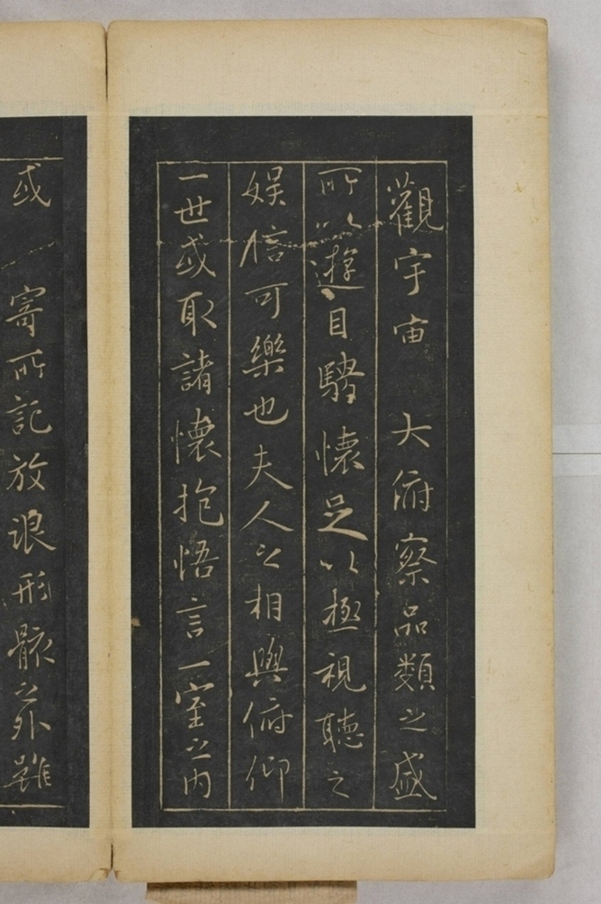 觀宇宙 大俯察品類之盛
所以遊目騁懷足以極視聽之
娱信可樂也夫人之相與俯仰
一世或取諸懷抱悟言一室之内
或 寄所託放浪形骸之外雖